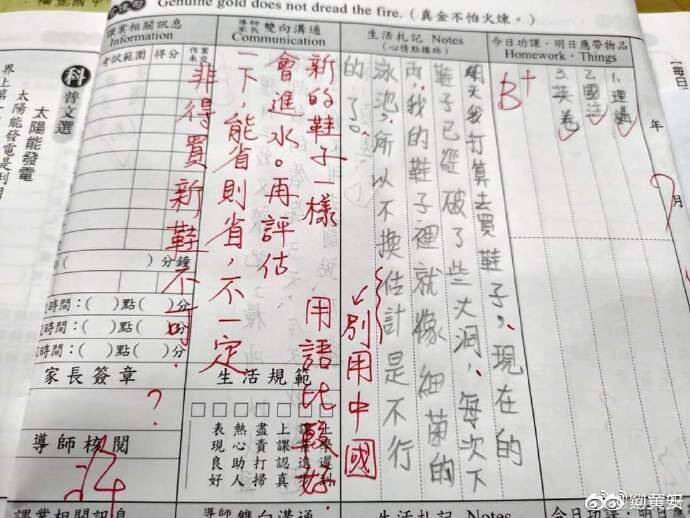 Genuine gold does not dread the fire.（真金不怕火煉。）
今日功課・明日應帶物品
Homework・Things
生活札記 Notes
（心情點播時）
導師家長 雙向溝通
Communication
課業相關訊息
Information
考試範圍 得分
作業未交
年
月
1.理
2.國
3.英卷
B+
明天我打算去買鞋子,現在的
鞋子已經破了些大洞,每次下
雨,我的鞋子裡就像細菌的
泳池,所以不換估計是不行
的了。
別用中國
用語比較好.
新的鞋子一樣
會進水。再評估
一下,能省則省,不一定
非得買新鞋不可
）分鐘
時間：( )點( )分
時間：( )點( )分
時間：( )點( )分
家長簽章
?
導師核閱
生活規範
上課認真
盡責打掃
熱心助人
表現良好
科普文選
太陽能發電
太陽能發電是利
界上第一
【每日
課業相關訊息
導師 雙向溝通
生活札記 Notes
今日功課・明日應
@劉黃安